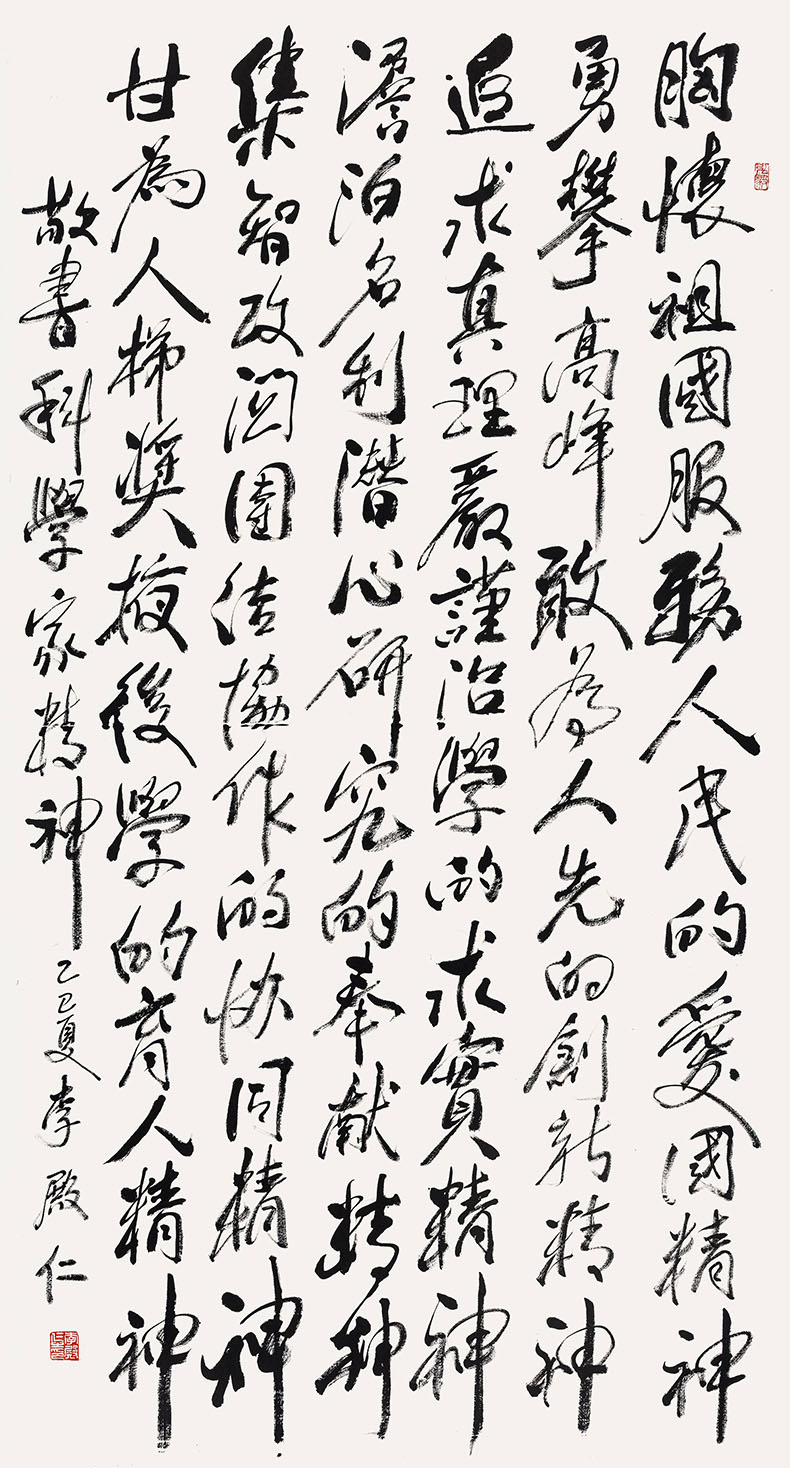 胸懷祖國服務人民的愛國精神
勇攀高峰敢為人先的創新精神
追求真理嚴謹治學的求實精神
澹泊名利潛心研究的奉献精神
集智攻関團结協作的協同精神
甘為人梯奨掖後學的育人精神
敬書科學家精神
乙巳夏李殿仁